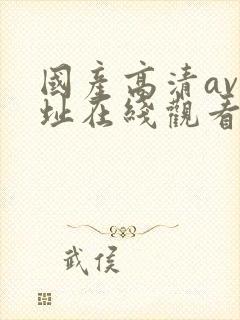 國産高清av
址在綫觀看
武侯